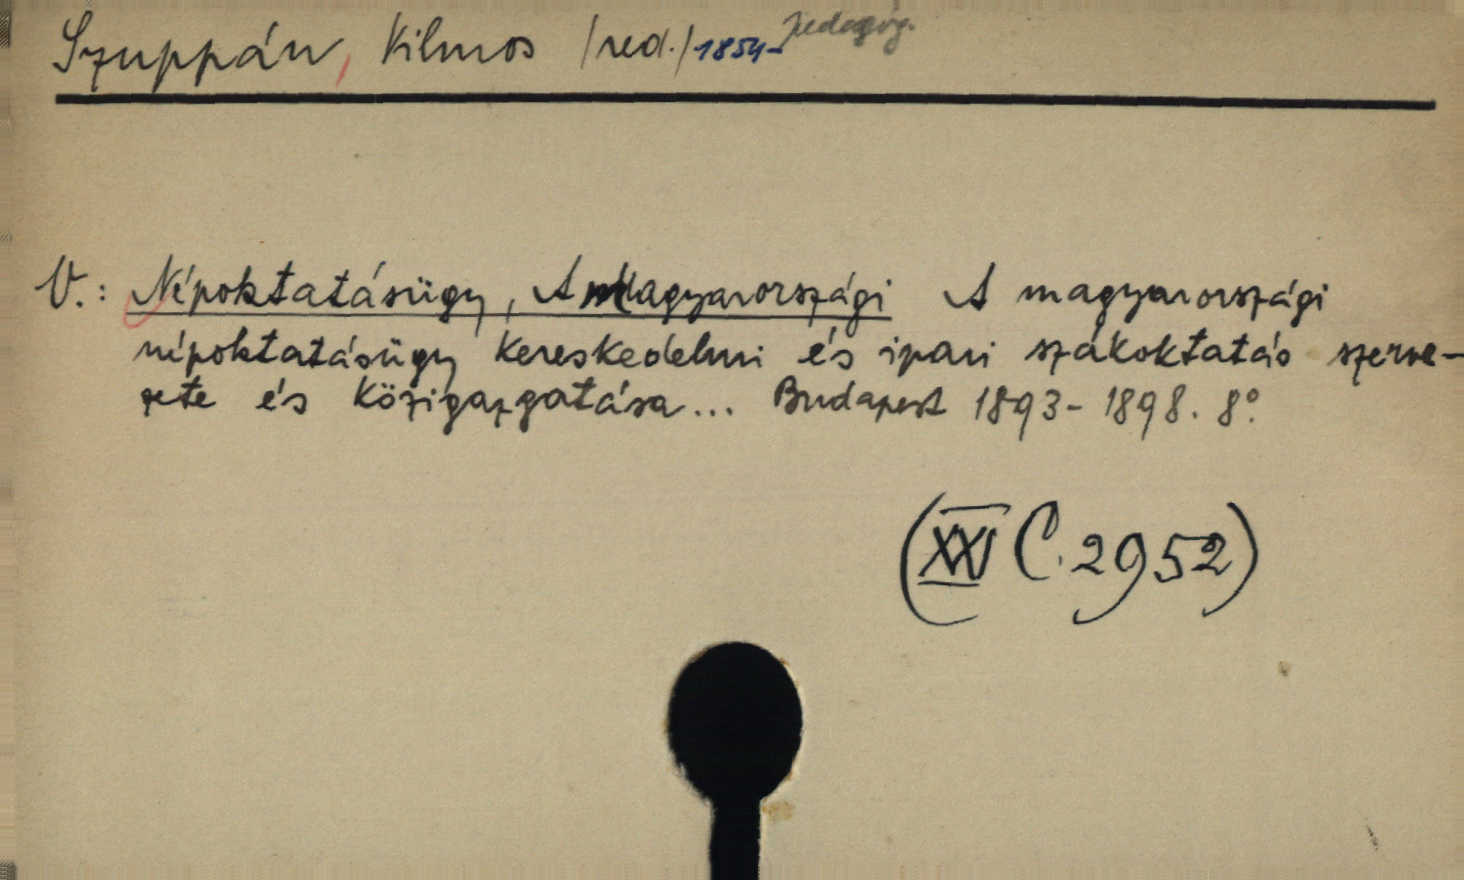 Szuppán, Vilmos /red./ 1854- Pedagóg.
V.: Népoktatásügy, A Magyarországi A magyarországi
népoktatásügy kereskedelmi és ipari szakoktatás szerve-
zete és közigazgatása... Budapest 1893-1898. 8°
(XXV C. 2952)